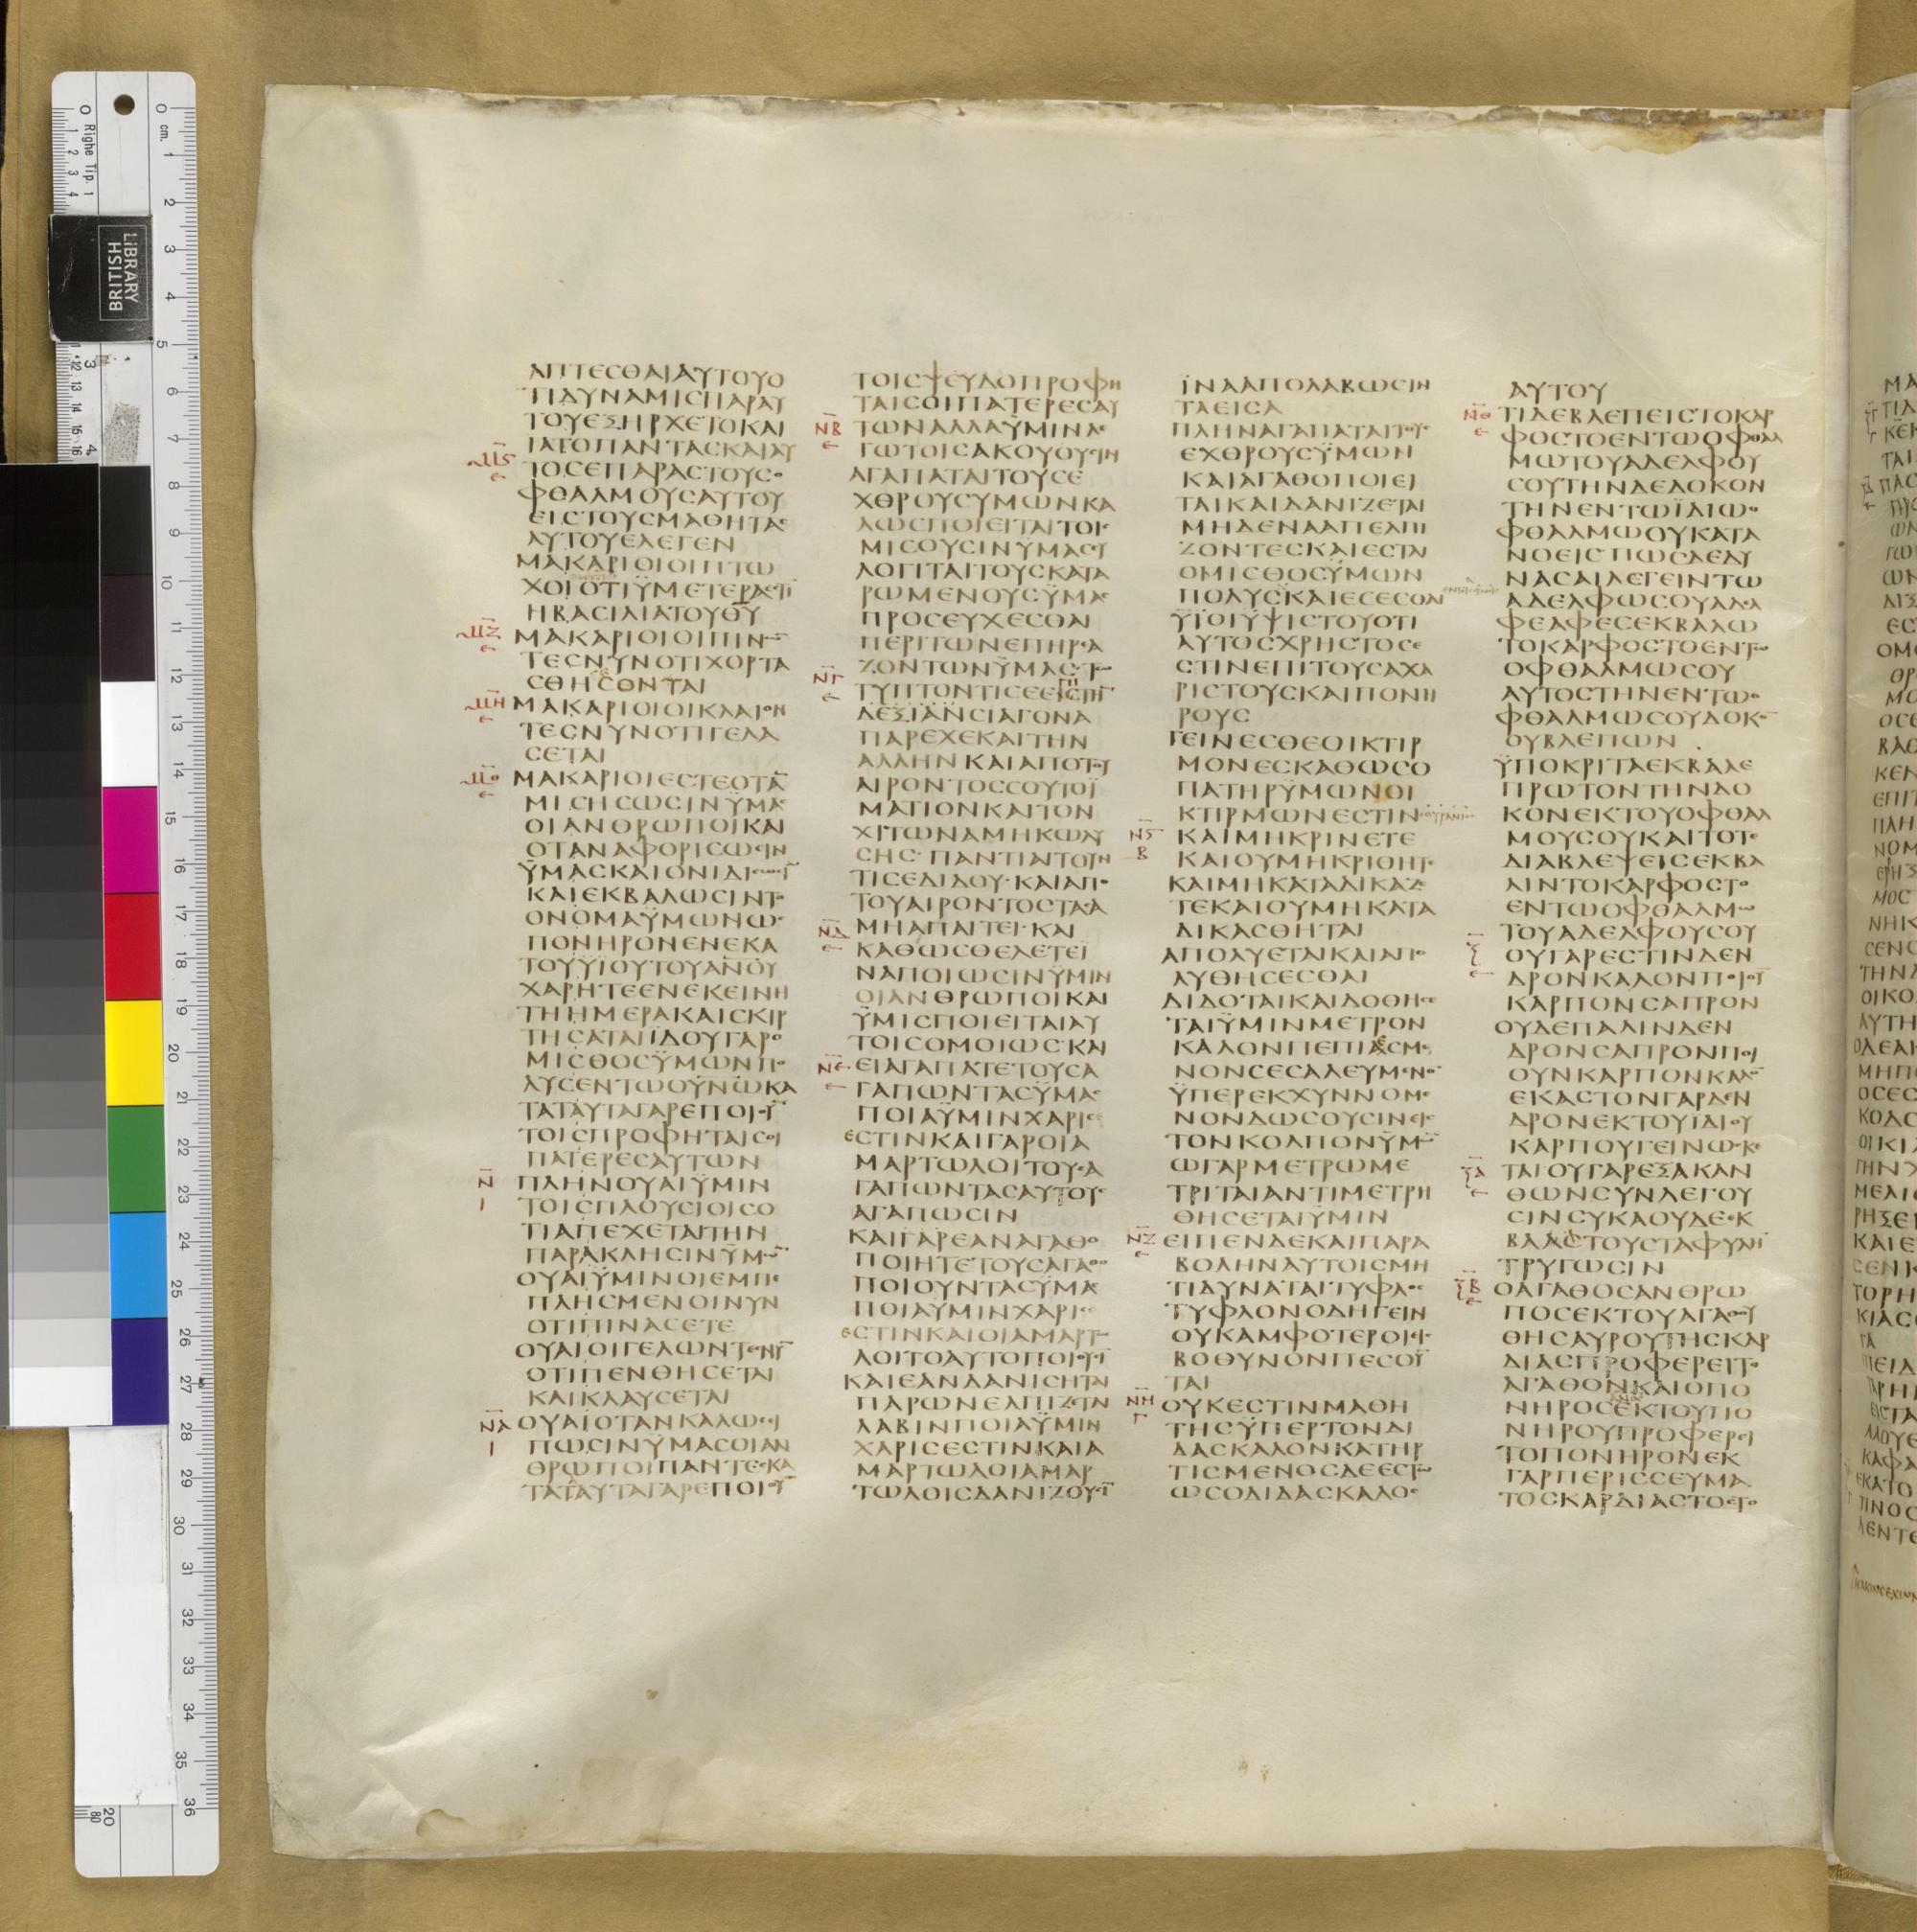 ΑΠΤΕСΘΑΙΑΥΤΟΥΟ
ΤΙΔΥΝΑΜΙСΠΑΡΑΥ
ΤΟΥΕΞΗΡΧΕΤΟΚΑΙ
ΙΑΤΟΠΑΝΤΑСΚΑΙΑΥ
ΜϚ ΤΟСΕΠΑΡΑСΤΟΥСΟ
ΦΘΑΛΜΟΥСΑΥΤΟΥ
ΕΙСΤΟΥСΜΑΘΗΤΑС
ΑΥΤΟΥΕΛΕΓΕΝ
ΜΑΚΑΡΙΟΙΟΙΠΤΩ
ΧΟΙΟΤΙΫΜΕΤΕΡΑΕΤΙ
ΗΒΑСΙΛΙΑΤΟΥΘΥ
ΜΖ ΜΑΚΑΡΙΟΙΟΙΠΙΝΩ
ΤΕСΝΥΝΟΤΙΧΟΡΤΑ
СΘΗСΟΝΤΑΙ
ΜΗ ΜΑΚΑΡΙΟΙΟΙΚΛΑΙΟΝ
ΤΕСΝΥΝΟΤΙΓΕΛΑ
СΕΤΑΙ
ΜΘ ΜΑΚΑΡΙΟΙΕСΤΕΟΤΑ
ΜΙСΗСΩСΙΝΫΜΑС
ΟΙΑΝΘΡΩΠΟΙΚΑΙ
ΟΤΑΝΑΦΟΡΙСΩСΙΝ
ΫΜΑСΚΑΙΟΝΙΔΙСΩСΙ
ΚΑΙΕΚΒΑΛΩСΙΝΤΟ
ΟΝΟΜΑΫΜΩΝΩС
ΠΟΝΗΡΟΝΕΝΕΚΑ
ΤΟΥΫΙΟΥΤΟΥΑΝΟΥ
ΧΑΡΗΤΕΕΝΕΚΕΙΝΗ
ΤΗΗΜΕΡΑΚΑΙСΚΙΡ
ΤΗСΑΤΑΙΪΔΟΥΓΑΡΟ
ΜΙСΘΟСΫΜΩΝΠΟ
ΛΥСΕΝΤΩΟΥΝΩΚΑ
ΤΑΤΑΥΤΑΓΑΡΕΠΟΙΟΥ
ΤΟΙСΠΡΟΦΗΤΑΙСΟΙ
ΠΑΤΕΡΕСΑΥΤΩΝ
Ν Ι ΠΛΗΝΟΥΑΙΫΜΙΝ
ΤΟΙСΠΛΟΥСΙΟΙСΟ
ΤΙΑΠΕΧΕΤΑΙΤΗΝ
ΠΑΡΑΚΛΗСΙΝΫΜΩ
ΟΥΑΙΫΜΙΝΟΙΕΜΠΕ
ΠΛΗСΜΕΝΟΙΝΥΝ
ΟΤΙΠΙΝΑСΕΤΕ
ΟΥΑΙΟΙΓΕΛΩΝΤΕСΝΥ
ΟΤΙΠΕΝΘΗСΕΤΑΙ
ΚΑΙΚΛΑΥСΕΤΑΙ
ΝΑ Ι ΟΥΑΙΟΤΑΝΚΑΛΩСΙ
ΠΩСΙΝΫΜΑСΟΙΑΝ
ΘΡΩΠΟΙΠΑΝΤΕСΚΑ
ΤΑΤΑΥΤΑΓΑΡΕΠΟΙΟΥ
ΤΟΙСΨΕΥΔΟΠΡΟΦΗ
ΤΑΙСΟΙΠΑΤΕΡΕСΑΥ
ΝΒ ΤΩΝΑΛΛΑΫΜΙΝΛΕ
ΓΩΤΟΙСΑΚΟΥΟΥСΙΝ
ΑΓΑΠΑΤΑΙΤΟΥСΕ
ΧΘΡΟΥСΥΜΩΝΚΑ
ΛΩСΠΟΙΕΙΤΑΙΤΟΙС
ΜΙСΟΥСΙΝΫΜΑСΕΥ
ΛΟΓΙΤΑΙΤΟΥСΚΑΤΑ
ΡΩΜΕΝΟΥСΫΜΑС
ΠΡΟСΕΥΧΕСΘΑΙ
ΠΕΡΙΤΩΝΕΠΗΡΕΑ
ΖΟΝΤΩΝΫΜΑСΤΩ
ΝΓ ΤΥΠΤΟΝΤΙСΕΕΙСΤΗ
ΔΕΞΙΑΝСΙΑΓΟΝΑ
ΠΑΡΕΧΕΚΑΙΤΗΝ
ΑΛΛΗΝΚΑΙΑΠΟΤΟΥ
ΑΙΡΟΝΤΟССΟΥΤΟΪ
ΜΑΤΙΟΝΚΑΙΤΟΝ
ΧΙΤΩΝΑΜΗΚΩΛΥ
СΗС·ΠΑΝΤΙΑΙΤΟΥΝ
ΤΙСΕΔΙΔΟΥ·ΚΑΙΑΠΟ
ΤΟΥΑΙΡΟΝΤΟСΤΑСΑ
ΝΔ ΜΗΑΠΑΙΤΕΙ·ΚΑΙ
ΚΑΘΩСΘΕΛΕΤΕΙ
ΝΑΠΟΙΩСΙΝΫΜΙΝ
ΟΙΑΝΘΡΩΠΟΙΚΑΙ
ΫΜΙСΠΟΙΕΙΤΑΙΑΥ
ΤΟΙСΟΜΟΙΩС·ΚΑΙ
ΝΕ ΕΙΑΓΑΠΑΤΕΤΟΥСΑ
ΓΑΠΩΝΤΑСΫΜΑС
ΠΟΙΑΫΜΙΝΧΑΡΙС
ΕСΤΙΝΚΑΙΓΑΡΟΙΑ
ΜΑΡΤΩΛΟΙΤΟΥСΑ
ΓΑΠΩΝΤΑСΑΥΤΟΥС
ΑΓΑΠΩСΙΝ
ΚΑΙΓΑΡΕΑΝΑΓΑΘΟ
ΠΟΙΗΤΕΤΟΥСΑΓΑΘΟ
ΠΟΙΟΥΝΤΑСΫΜΑС
ΠΟΙΑΥΜΙΝΧΑΡΙС
ΕСΤΙΝΚΑΙΟΙΑΜΑΡΤΩ
ΛΟΙΤΟΑΥΤΟΠΟΙΟΥСΙ
ΚΑΙΕΑΝΔΑΝΙСΗΤΑΙ
ΠΑΡΩΝΕΛΠΙΖΕΤΑΙ
ΛΑΒΙΝΠΟΙΑΫΜΙΝ
ΧΑΡΙСΕСΤΙΝΚΑΙΑ
ΜΑΡΤΩΛΟΙΑΜΑΡ
ΤΩΛΟΙСΔΑΝΙΖΟΥСΙ
ΪΝΑΑΠΟΛΑΒΩСΙΝ
ΤΑΕΙСΑ
ΠΛΗΝΑΓΑΠΑΤΑΙΤΟΥС
ΕΧΘΡΟΥСΫΜΩΝ
ΚΑΙΑΓΑΘΟΠΟΙΕΙ
ΤΑΙΚΑΙΔΑΝΙΖΕΤΑΙ
ΜΗΔΕΝΑΑΠΕΛΠΙ
ΖΟΝΤΕСΚΑΙΕСΤΑΙ
ΟΜΙСΘΟСΫΜΩΝ
ΠΟΛΥСΚΑΙΕСΕСΘΑΙ
ΫΪΟΙΫΨΙСΤΟΥΟΤΙ
ΑΥΤΟСΧΡΗСΤΟСΕ
СΤΙΝΕΠΙΤΟΥСΑΧΑ
ΡΙСΤΟΥСΚΑΙΠΟΝΗ
ΡΟΥС
ΓΕΙΝΕСΘΕΟΙΚΤΙΡ
ΜΟΝΕСΚΑΘΩСΟ
ΠΑΤΗΡΥΜΩΝΟΙ
ΚΤΙΡΜΩΝΕСΤΙΝ
ΝϚ Β ΚΑΙΜΗΚΡΙΝΕΤΕ
ΚΑΙΟΥΜΗΚΡΙΘΗΤΕ
ΚΑΙΜΗΚΑΤΑΔΙΚΑΖΕ
ΤΕΚΑΙΟΥΜΗΚΑΤΑ
ΔΙΚΑСΘΗΤΑΙ
ΑΠΟΛΥΕΤΑΙΚΑΙΑΠΟ
ΛΥΘΗСΕСΘΑΙ
ΔΙΔΟΤΑΙΚΑΙΔΟΘΗСΕ
ΤΑΙΫΜΙΝΜΕΤΡΟΝ
ΚΑΛΟΝΠΕΠΙΑΕСΜΕ
ΝΟΝСΕСΑΛΕΥΜΕΝΟ
ΫΠΕΡΕΚΧΥΝΝΟΜΕ
ΝΟΝΔΩСΟΥСΙΝΕΙС
ΤΟΝΚΟΛΠΟΝΫΜΩ
ΩΓΑΡΜΕΤΡΩΜΕ
ΤΡΙΤΑΙΑΝΤΙΜΕΤΡΗ
ΘΗСΕΤΑΙΫΜΙΝ
ΝΖ ΕΙΠΕΝΔΕΚΑΙΠΑΡΑ
ΒΟΛΗΝΑΥΤΟΙСΜΗ
ΤΙΔΥΝΑΤΑΙΤΥΦΛΟС
ΤΥΦΛΟΝΟΔΗΓΕΙΝ
ΟΥΚΑΜΦΟΤΕΡΟΙΕΙС
ΒΟΘΥΝΟΝΠΕСΟΥ
ΤΑΙ
ΝΗ Γ ΟΥΚΕСΤΙΝΜΑΘΗ
ΤΗСΫΠΕΡΤΟΝΔΙ
ΔΑСΚΑΛΟΝΚΑΤΗΡ
ΤΙСΜΕΝΟСΔΕΕСΤΩ
ΩСΟΔΙΔΑСΚΑΛΟС
ΑΥΤΟΥ
ΝΘ ΤΙΔΕΒΛΕΠΕΙСΤΟΚΑΡ
ΦΟСΤΟΕΝΤΩΟΦΘΑΛ
ΜΩΤΟΥΑΔΕΛΦΟΥ
СΟΥΤΗΝΔΕΔΟΚΟΝ
ΤΗΝΕΝΤΩΪΔΙΩΟ
ΦΘΑΛΜΩΟΥΚΑΤΑ
ΝΟΕΙСΠΩСΔΕΔΥ
ΝΑСΑΙΛΕΓΕΙΝΤΩ
ΑΔΕΛΦΩСΟΥΑΔΕΛ
ΦΕΑΦΕСΕΚΒΑΛΩ
ΤΟΚΑΡΦΟСΤΟΕΝΤΩ
ΟΦΘΑΛΜΩСΟΥ
ΑΥΤΟСΤΗΝΕΝΤΩΟ
ΦΘΑΛΜΩСΟΥΔΟΚΟ
ΟΥΒΛΕΠΩΝ
ΫΠΟΚΡΙΤΑΕΚΒΑΛΕ
ΠΡΩΤΟΝΤΗΝΔΟ
ΚΟΝΕΚΤΟΥΟΦΘΑΛ
ΜΟΥСΟΥΚΑΙΤΟΤΕ
ΔΙΑΒΛΕΨΕΙСΕΚΒΑ
ΛΙΝΤΟΚΑΡΦΟСΤΟ
ΕΝΤΩΟΦΘΑΛΜΩ
ΤΟΥΑΔΕΛΦΟΥСΟΥ
Ξ ΟΥΓΑΡΕСΤΙΝΔΕΝ
ΔΡΟΝΚΑΛΟΝΠΟΙΟΥ
ΚΑΡΠΟΝСΑΠΡΟΝ
ΟΥΔΕΠΑΛΙΝΔΕΝ
ΔΡΟΝСΑΠΡΟΝΠΟΙ
ΟΥΝΚΑΡΠΟΝΚΑΛΟ
ΕΚΑСΤΟΝΓΑΡΔΕΝ
ΔΡΟΝΕΚΤΟΥΪΔΙΟΥ
ΚΑΡΠΟΥΓΕΙΝΩСΚΕ
ΞΑ ΤΑΙΟΥΓΑΡΕΞΑΚΑΝ
ΘΩΝСΥΝΛΕΓΟΥ
СΙΝСΥΚΑΟΥΔΕΕΚ
ΒΑΛΤΟΥСΤΑΦΥΛΗ
ΤΡΥΓΩСΙΝ
ΞΒ ΟΑΓΑΘΟСΑΝΘΡΩ
ΠΟСΕΚΤΟΥΑΓΑΘΟΥ
ΘΗСΑΥΡΟΥΤΗСΚΑΡ
ΔΙΑСΠΡΟΦΕΡΕΙΤΟ
ΑΓΑΘΟΝΚΑΙΟΠΟ
ΝΗΡΟСΕΚΤΟΥΠΟ
ΝΗΡΟΥΠΡΟΦΕΡΕΙ
ΤΟΠΟΝΗΡΟΝΕΚ
ΓΑΡΠΕΡΙССΕΥΜΑ
ΤΟСΚΑΡΔΙΑСΤΟСΤΟ
BRITISH
LIBRARY